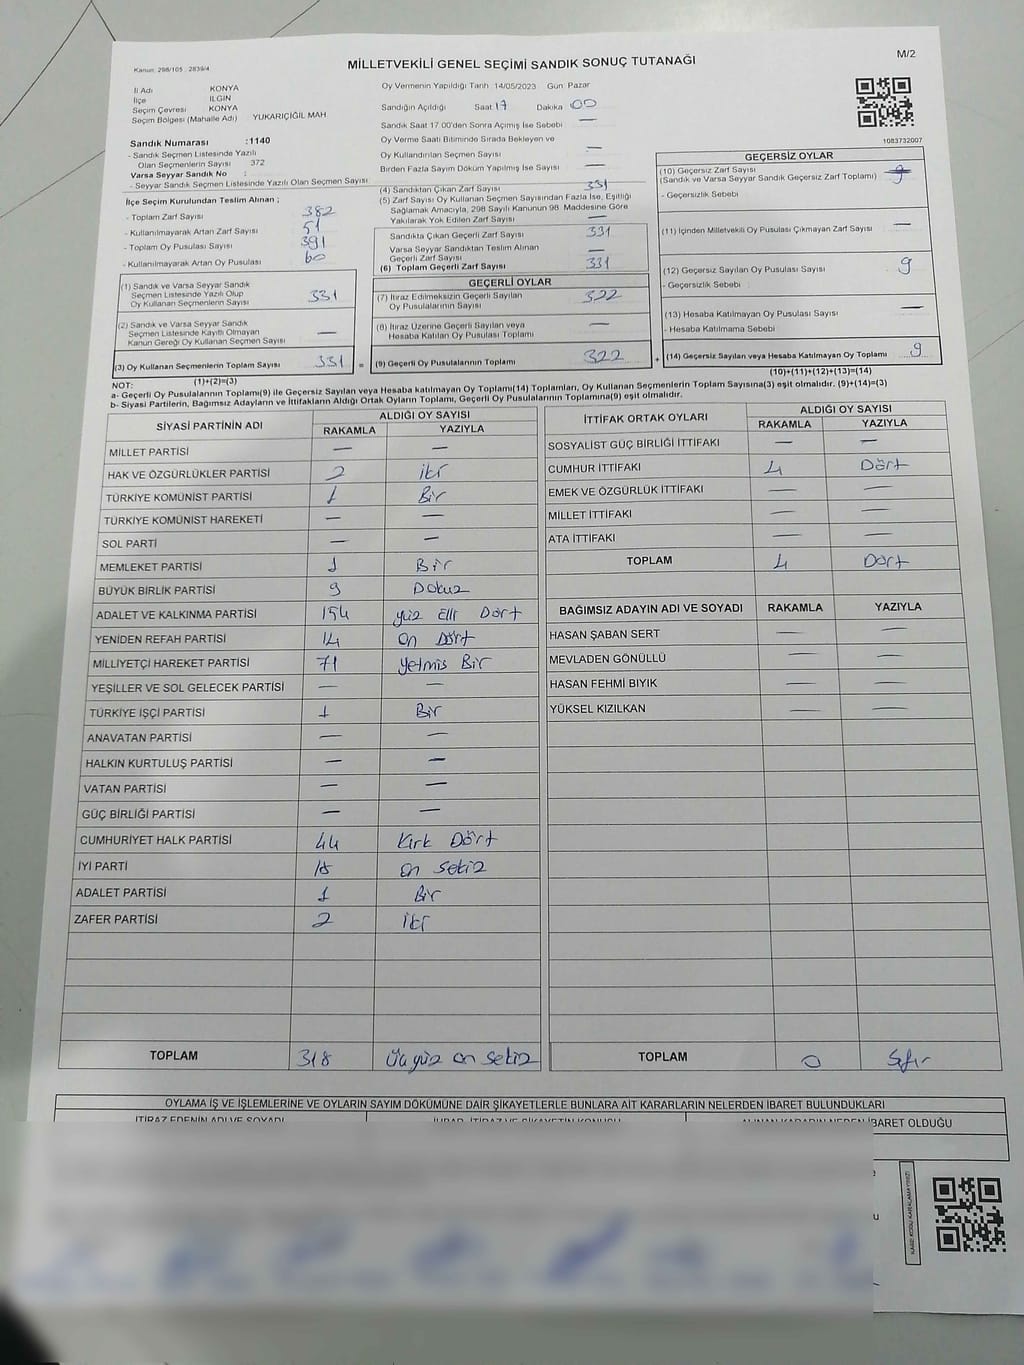 Kanun: 298/105 , 2839/4
MİLLETVEKİLİ GENEL SEÇİMİ SANDIK SONUÇ TUTANAĞI
M/2
İl Adı KONYA
İlçe ILGIN
Seçim Çevresi KONYA
Seçim Bölgesi (Mahalle Adı) YUKARIÇİĞİL MAH
Sandık Numarası :1140
- Sandık Seçmen Listesinde Yazılı
Olan Seçmenlerin Sayısı 372
Varsa Seyyar Sandık No :
- Seyyar Sandık Seçmen Listesinde Yazılı Olan Seçmen Sayısı
İlçe Seçim Kurulundan Teslim Alınan ;
- Toplam Zarf Sayısı 382
- Kullanılmayarak Artan Zarf Sayısı 51
- Toplam Oy Pusulası Sayısı 391
- Kullanılmayarak Artan Oy Pusulası 60
(1) Sandık ve Varsa Seyyar Sandık
Seçmen Listesinde Yazılı Olup
Oy Kullanan Seçmenlerin Sayısı 331
(2) Sandık ve Varsa Seyyar Sandık
Seçmen Listesinde Kayıtlı Olmayan
Kanun Gereği Oy Kullanan Seçmen Sayısı —
(3) Oy Kullanan Seçmenlerin Toplam Sayısı 331 =
(1)+(2)=(3)
Oy Vermenin Yapıldığı Tarih 14/05/2023 Gün Pazar
Sandığın Açıldığı Saat 17 Dakika 00
Sandık Saat 17.00'den Sonra Açımış İse Sebebi —
Oy Verme Saati Bitiminde Sırada Bekleyen ve
Oy Kullandırılan Seçmen Sayısı —
Birden Fazla Sayım Döküm Yapılmış İse Sayısı —
(4) Sandıktan Çıkan Zarf Sayısı 331
(5) Zarf Sayısı Oy Kullanan Seçmen Sayısından Fazla İse, Eşitliği
Sağlamak Amacıyla, 298 Sayılı Kanunun 98. Maddesine Göre
Yakılarak Yok Edilen Zarf Sayısı —
Sandıkta Çıkan Geçerli Zarf Sayısı 331
Varsa Seyyar Sandıktan Teslim Alınan
Geçerli Zarf Sayısı —
(6) Toplam Geçerli Zarf Sayısı 331
GEÇERLİ OYLAR
(7) İtiraz Edilmeksizin Geçerli Sayılan
Oy Pusulalarının Sayısı 322
(8) İtiraz Üzerine Geçerli Sayılan veya
Hesaba Katılan Oy Pusulası Toplamı —
(9) Geçerli Oy Pusulalarının Toplamı 322 +
1083732007
GEÇERSİZ OYLAR
(10) Geçersiz Zarf Sayısı
(Sandık ve Varsa Seyyar Sandık Geçersiz Zarf Toplamı)
- Geçersizlik Sebebi
(11) İçinden Milletvekili Oy Pusulası Çıkmayan Zarf Sayısı —
(12) Geçersiz Sayılan Oy Pusulası Sayısı 9
- Geçersizlik Sebebi :
(13) Hesaba Katılmayan Oy Pusulası Sayısı —
- Hesaba Katılmama Sebebi
(14) Geçersiz Sayılan veya Hesaba Katılmayan Oy Toplamı 9
(10)+(11)+(12)+(13)=(14)
NOT:
a- Geçerli Oy Pusulalarının Toplamı(9) ile Geçersiz Sayılan veya Hesaba katılmayan Oy Toplamı(14) Toplamları, Oy Kullanan Seçmenlerin Toplam Sayısına(3) eşit olmalıdır. (9)+(14)=(3)
b- Siyasi Partilerin, Bağımsız Adayların ve İttifakların Aldığı Ortak Oyların Toplamı, Geçerli Oy Pusulalarının Toplamına(9) eşit olmalıdır.
SİYASİ PARTİNİN ADI ALDIĞI OY SAYISI
RAKAMLA YAZIYLA
MİLLET PARTİSİ — —
HAK VE ÖZGÜRLÜKLER PARTİSİ 2 iki
TÜRKİYE KOMÜNİST PARTİSİ 1 Bir
TÜRKİYE KOMÜNİST HAREKETİ — —
SOL PARTİ — —
MEMLEKET PARTİSİ 1 Bir
BÜYÜK BİRLİK PARTİSİ 9 Dokuz
ADALET VE KALKINMA PARTİSİ 154 yüz Elli Dört
YENİDEN REFAH PARTİSİ 14 On Dört
MİLLİYETÇİ HAREKET PARTİSİ 71 yetmiş Bir
YEŞİLLER VE SOL GELECEK PARTİSİ — —
TÜRKİYE İŞÇİ PARTİSİ 1 Bir
ANAVATAN PARTİSİ — —
HALKIN KURTULUŞ PARTİSİ — —
VATAN PARTİSİ — —
GÜÇ BİRLİĞİ PARTİSİ — —
CUMHURİYET HALK PARTİSİ 44 Kırk Dört
İYİ PARTİ 18 on sekiz
ADALET PARTİSİ 1 Bir
ZAFER PARTİSİ 2 iki
TOPLAM 318 Üçyüz on sekiz
İTTİFAK ORTAK OYLARI ALDIĞI OY SAYISI
RAKAMLA YAZIYLA
SOSYALİST GÜÇ BİRLİĞİ İTTİFAKI — —
CUMHUR İTTİFAKI 4 Dört
EMEK VE ÖZGÜRLÜK İTTİFAKI — —
MİLLET İTTİFAKI — —
ATA İTTİFAKI — —
TOPLAM 4 Dört
BAĞIMSIZ ADAYIN ADI VE SOYADI RAKAMLA YAZIYLA
HASAN ŞABAN SERT — —
MEVLADEN GÖNÜLLÜ — —
HASAN FEHMİ BIYIK — —
YÜKSEL KIZILKAN — —
TOPLAM 0 Sıfır
OYLAMA İŞ VE İŞLEMLERİNE VE OYLARIN SAYIM DÖKÜMÜNE DAİR ŞİKAYETLERLE BUNLARA AİT KARARLARIN NELERDEN İBARET BULUNDUKLARI
İTİRAZ EDENİN ADI VE SOYADI
ALINAN KARARIN NEDEN İBARET OLDUĞU